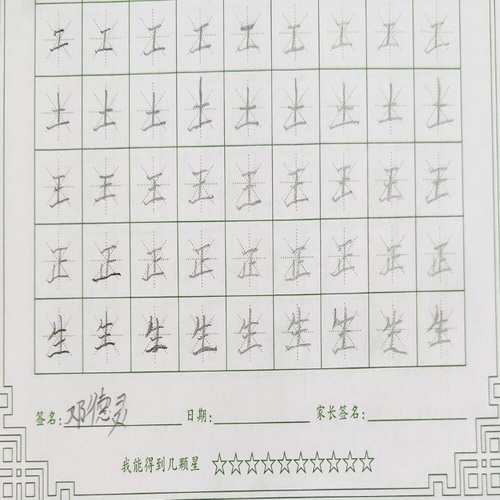 工工工工工工工工工
土土土土土土土土土
王王王王王王王王王
正正正正正正正正正
生生生生生生生生生
签名:邓德灵 日期: 家长签名:
我能得到几颗星 ☆☆☆☆☆☆☆☆☆☆